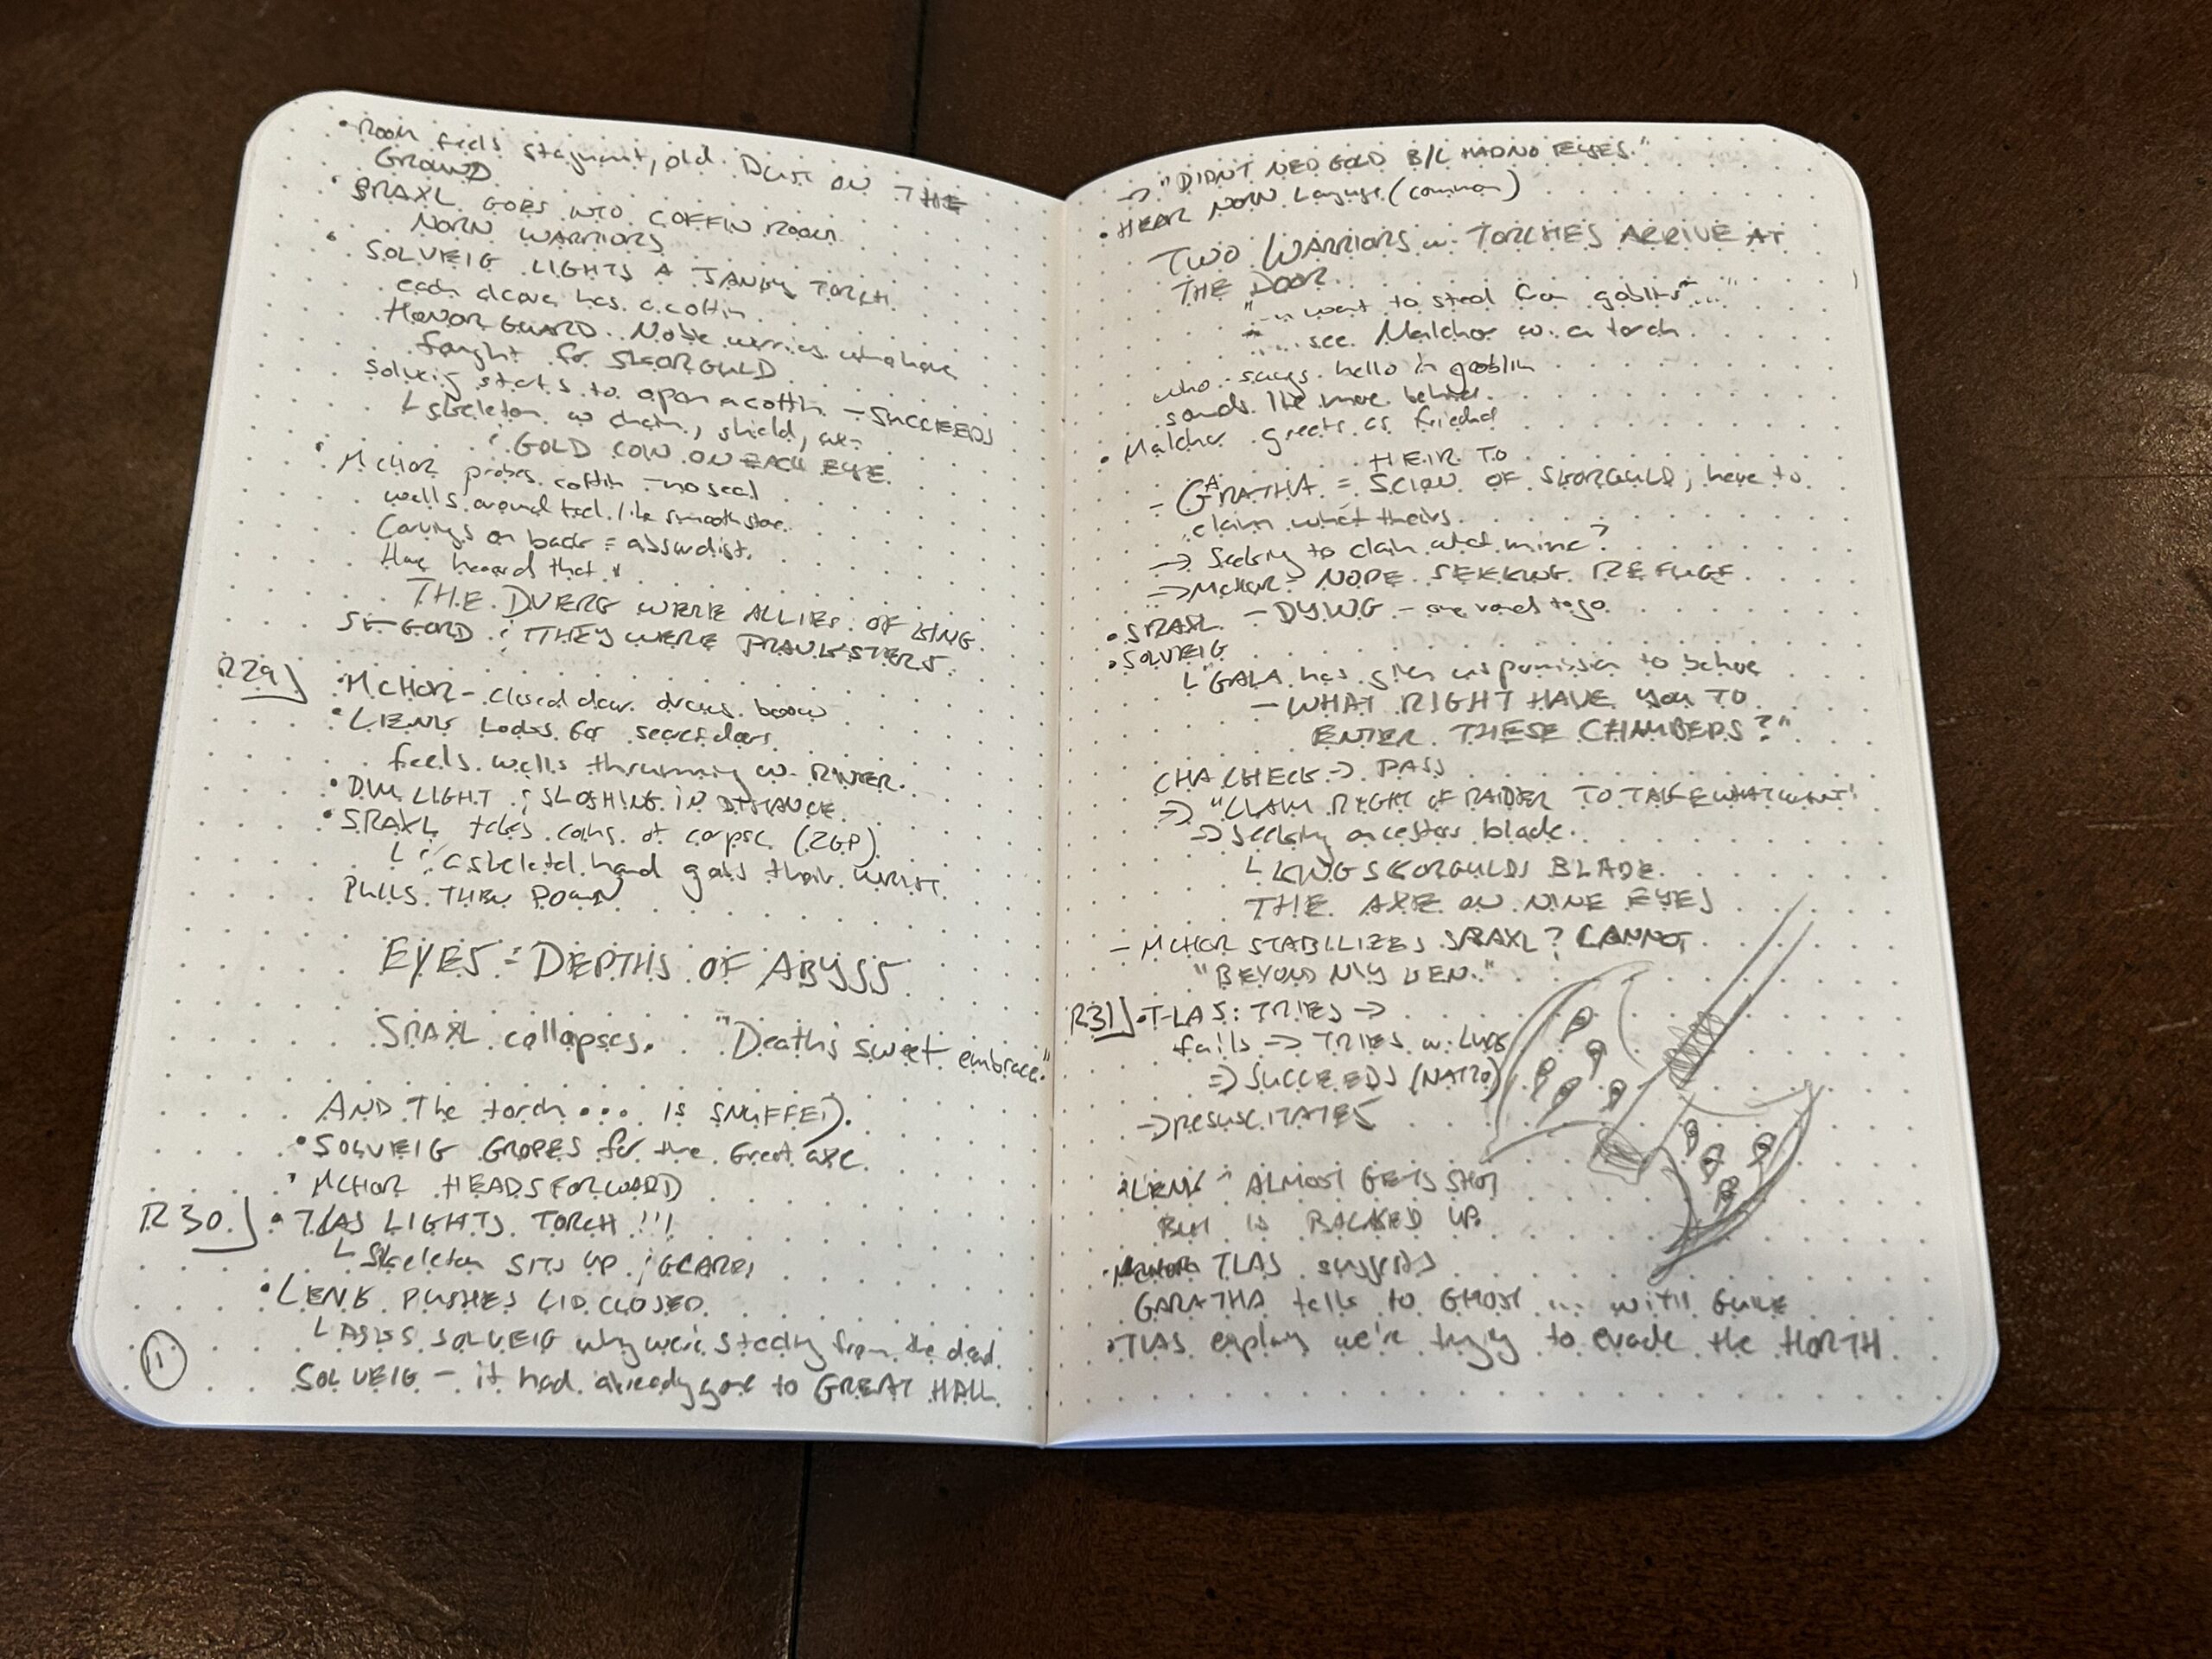 • Room feels stagnant, old. Dust ON THE
GROUND
• SRAXL GOES INTO COFFIN ROOM
NORN WARRIORS
• SOLVEIG LIGHTS A JANKY TORCH
each alcove has a coffin
HONOR GUARD. Noble warriors who have
fought for SKORGULD
Solveig starts to open a coffin - SUCCEEDS
L skeleton w chain, shield, axe
: GOLD COIN ON EACH EYE
• MCHOR probes coffin - no seal
walls around feel like smooth stone
Carvings on back = absurdist.
Has heard that
THE DVERG WERE ALLIES OF KING
SKGORD ; THEY WERE PRANKSTERS
R29]
• MCHOR - closed door draws bow
• LIENK Looks for secret doors
feels walls thrumming w. RIVER.
• DIM LIGHT ; SLOSHING IN DISTANCE
• SRAXL takes coins of corpse (2GP)
L : a skeletal hand grabs their wrist
PULLS THEM DOWN
EYES = DEPTHS OF ABYSS
SRAXL collapses. "Death's sweet embrace."
AND The torch... is SNUFFED.
• SOLVEIG GROPES for the Great axe.
• MCHOR HEADS FORWARD
R30.] • TLAS LIGHTS TORCH !!!
L Skeleton SITS UP ; GLARES
• LENK PUSHES LID CLOSED
L ASKS SOLVEIG why we're stealing from the dead
SOLVEIG - it had already gone to GREAT HALL
11
-> "DIDNT NEED GOLD B/C HAD NO EYES."
• HEAR NORN Language (common)
TWO WARRIORS w. TORCHES ARRIVE AT
THE DOOR
"... want to steal from goblins ..."
... see Malchor w. a torch
who says hello in goblin
sounds like more behind.
• Malchor greets as friend
HEIR TO
- GARATHA = SCION OF SKORGULD; here to
claim what theirs.
-> Seeking to claim what mine?
-> MCHOR - NOPE SEEKING REFUGE
• SRAXL - DYING - one round to go
• SOLVEIG
L "GALA has given us permission to be here
- WHAT RIGHT HAVE YOU TO
ENTER THESE CHAMBERS?"
CHA CHECK -> PASS
-> "CLAIM RIGHT OF RAIDER TO TAKE WHAT I WANT"
-> Seeking ancestors blade.
L KING SKORGULDS BLADE
THE AXE ON NINE EYES
- MCHOR STABILIZES SRAXL? CANNOT
"BEYOND MY KEN."
R31] • T-LAS: TRIES ->
fails -> TRIES w. Luck
=> SUCCEEDS (NAT20)
-> RESUSCITATES
• LENK - ALMOST GETS SHOT
BUT IS BACKED UP.
• TLAS suggests
GARATHA talks to GHOST ... WITH GUILE
• TLAS explains we're trying to evade the HORTH